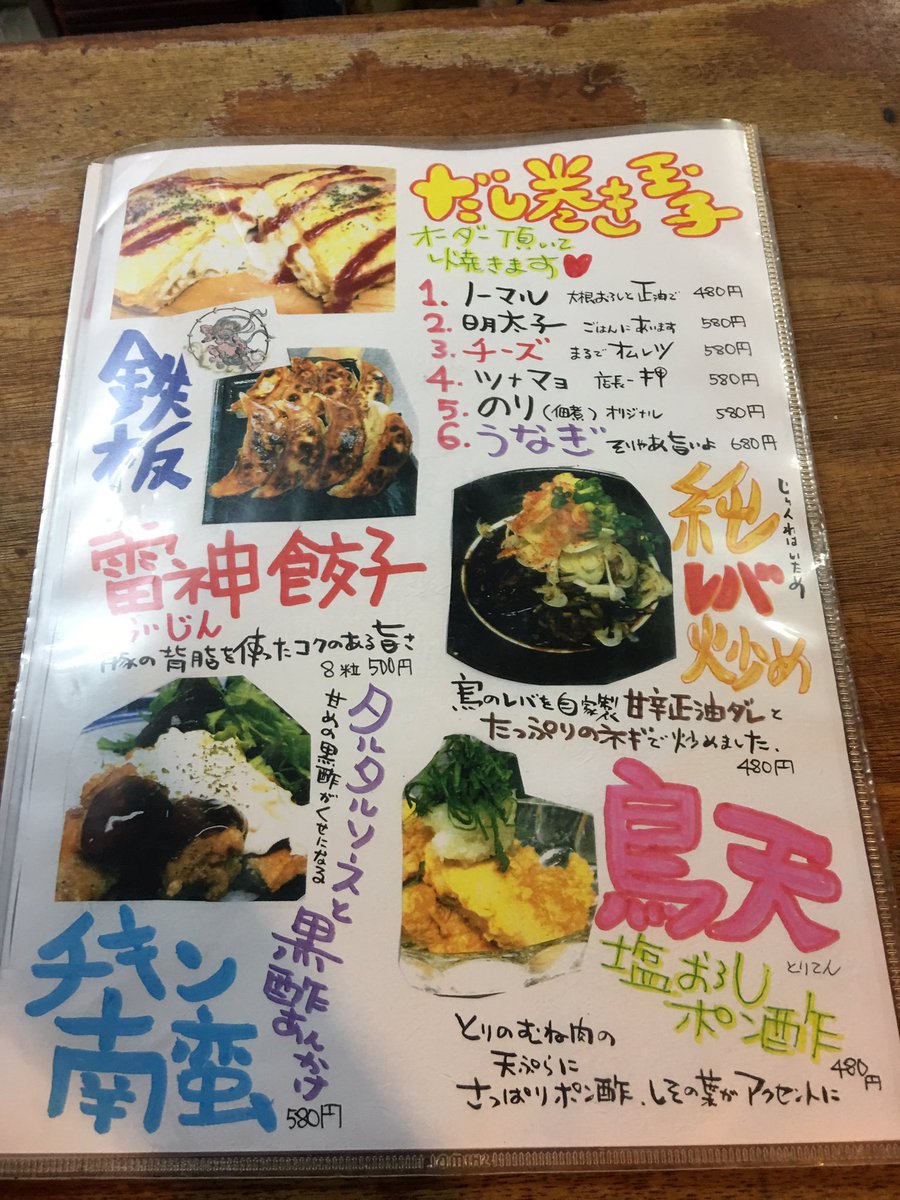 だし巻き玉子
オーダー頂いて
焼きます♥
1. ノーマル 大根おろしと正油で 480円
2. 明太子 ごはんにあいます 580円
3. チーズ まるでオムレツ 580円
4. ツナマヨ 店長一押 580円
5. のり(佃煮)オリジナル 580円
6. うなぎ そりゃあ旨いよ 680円
鉄板
雷神餃子
らいじん
豚の背脂を使ったコクのある旨さ
8粒 500円
純レバ炒め
じゅんればいため
鳥のレバを自家製甘辛正油ダレと
たっぷりのネギで炒めました、
480円
チキン
南蛮
タルタルソースと
黒酢あんかけ
甘めの黒酢がくせになる
580円
鳥天
とりてん
塩おろし
ポン酢
480円
とりのむね肉の
天ぷらに
さっぱりポン酢、しその葉がアクセントに